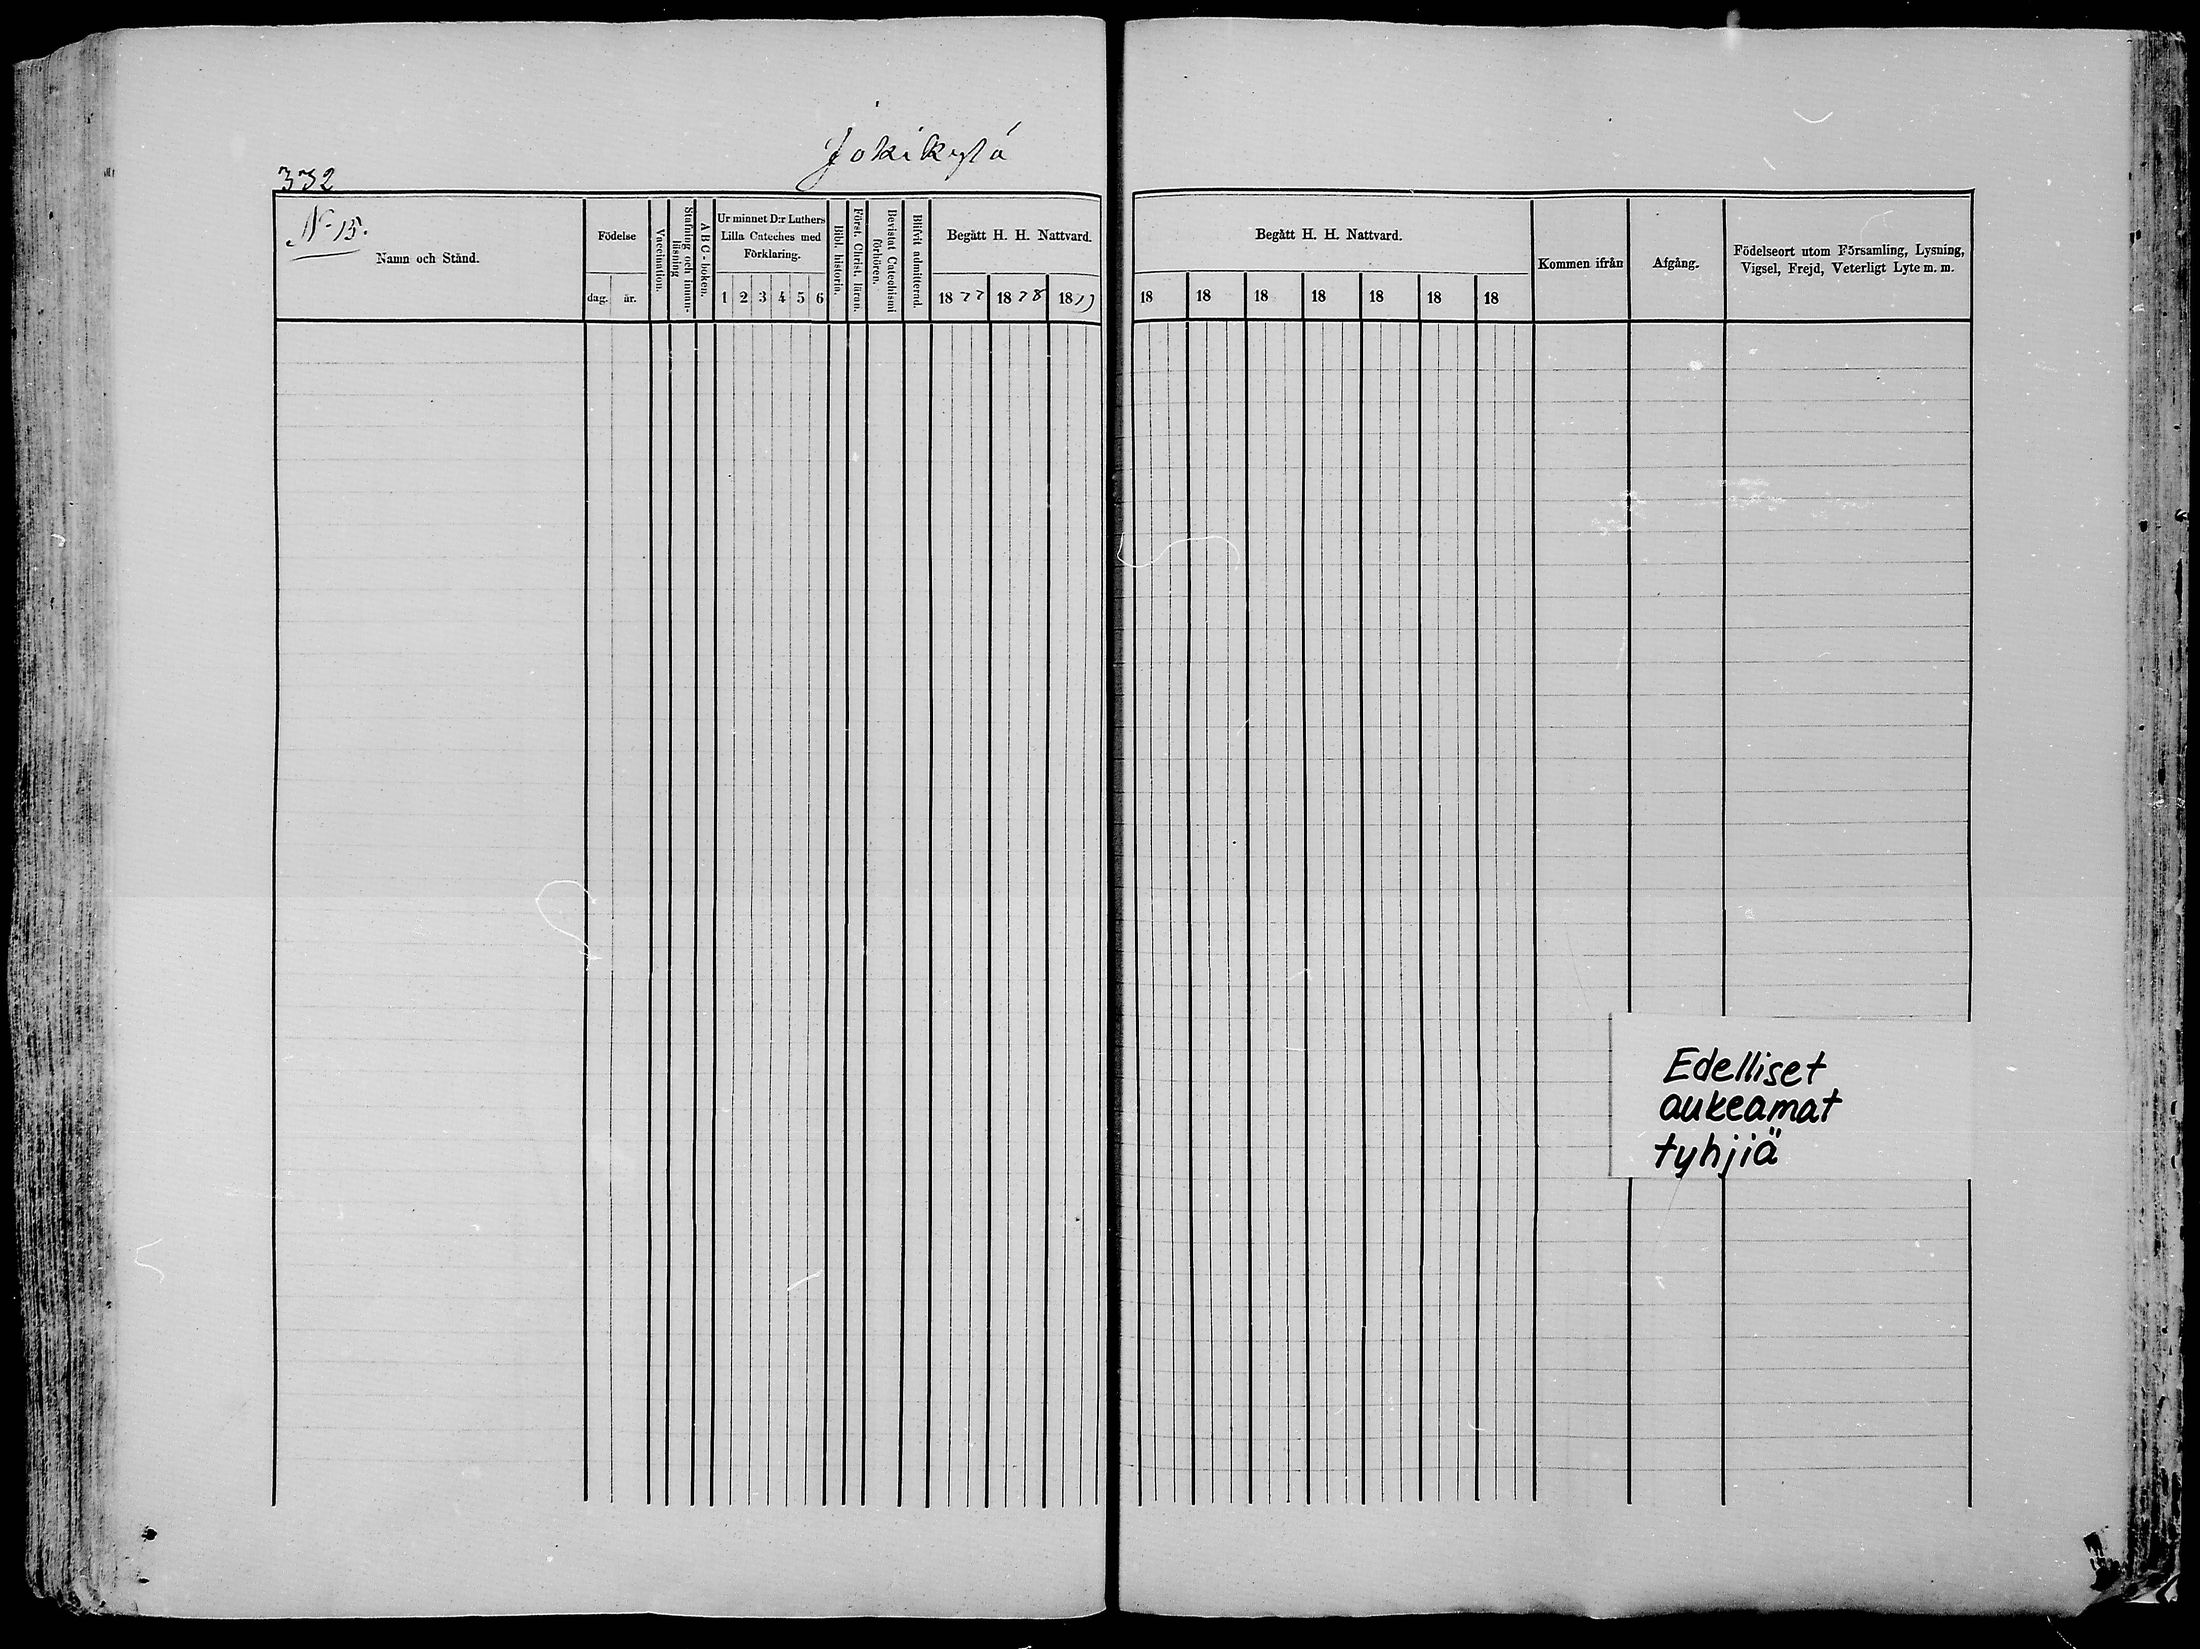 Jokikylä
332
N. 15.
Namn och Stånd.
Födelse
dag.
år.
Vaccination.
Stafning och innan-
läsning
ABC-boken.
Ur minnet D:r Luthers
Lilla Cateches med
Förklaring.
1 2 3 4 5 6
Bibl. historia.
Först. Christ. läran.
Bevistat Catechismi
förhören.
Blifvit admitterad.
Begått H. H. Nattvard.
1877 1878 1879
Begått H. H. Nattvard.
18 18 18 18 18 18 18
Kommen ifrån
Afgång.
Födelseort utom Församling, Lysning,
Vigsel, Frejd, Veterligt Lyte m. m.
Edelliset
aukeamat
tyhjiä